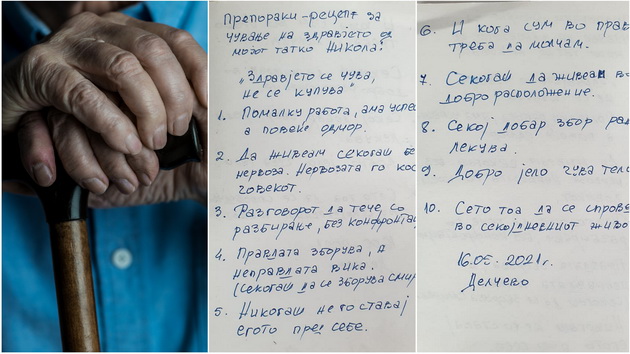 Препораки - рецепт за
чување на здравјето од
мојот татко Никола:
„Здравјето се чува,
не се купува"
1. Помалку работа, ама
а повеќе одмор.
2. Да живеам секогаш
нервоза. Нервозата го
човекот.
3. Разговорот да тече со
разбирање, без
4. Правдата зборува, а
неправдата вика.
(Секогаш да се зборува
5. Никогаш не го ставај
егото пред себе.
6. И кога сум во
треба да молчам.
7. Секогаш да живеам во
добро расположение.
8. Секој добар збор
лекува.
9. Добро јело чува
10. Сето тоа да се
во секојдневниот
16.05.2021 г.
Делчево